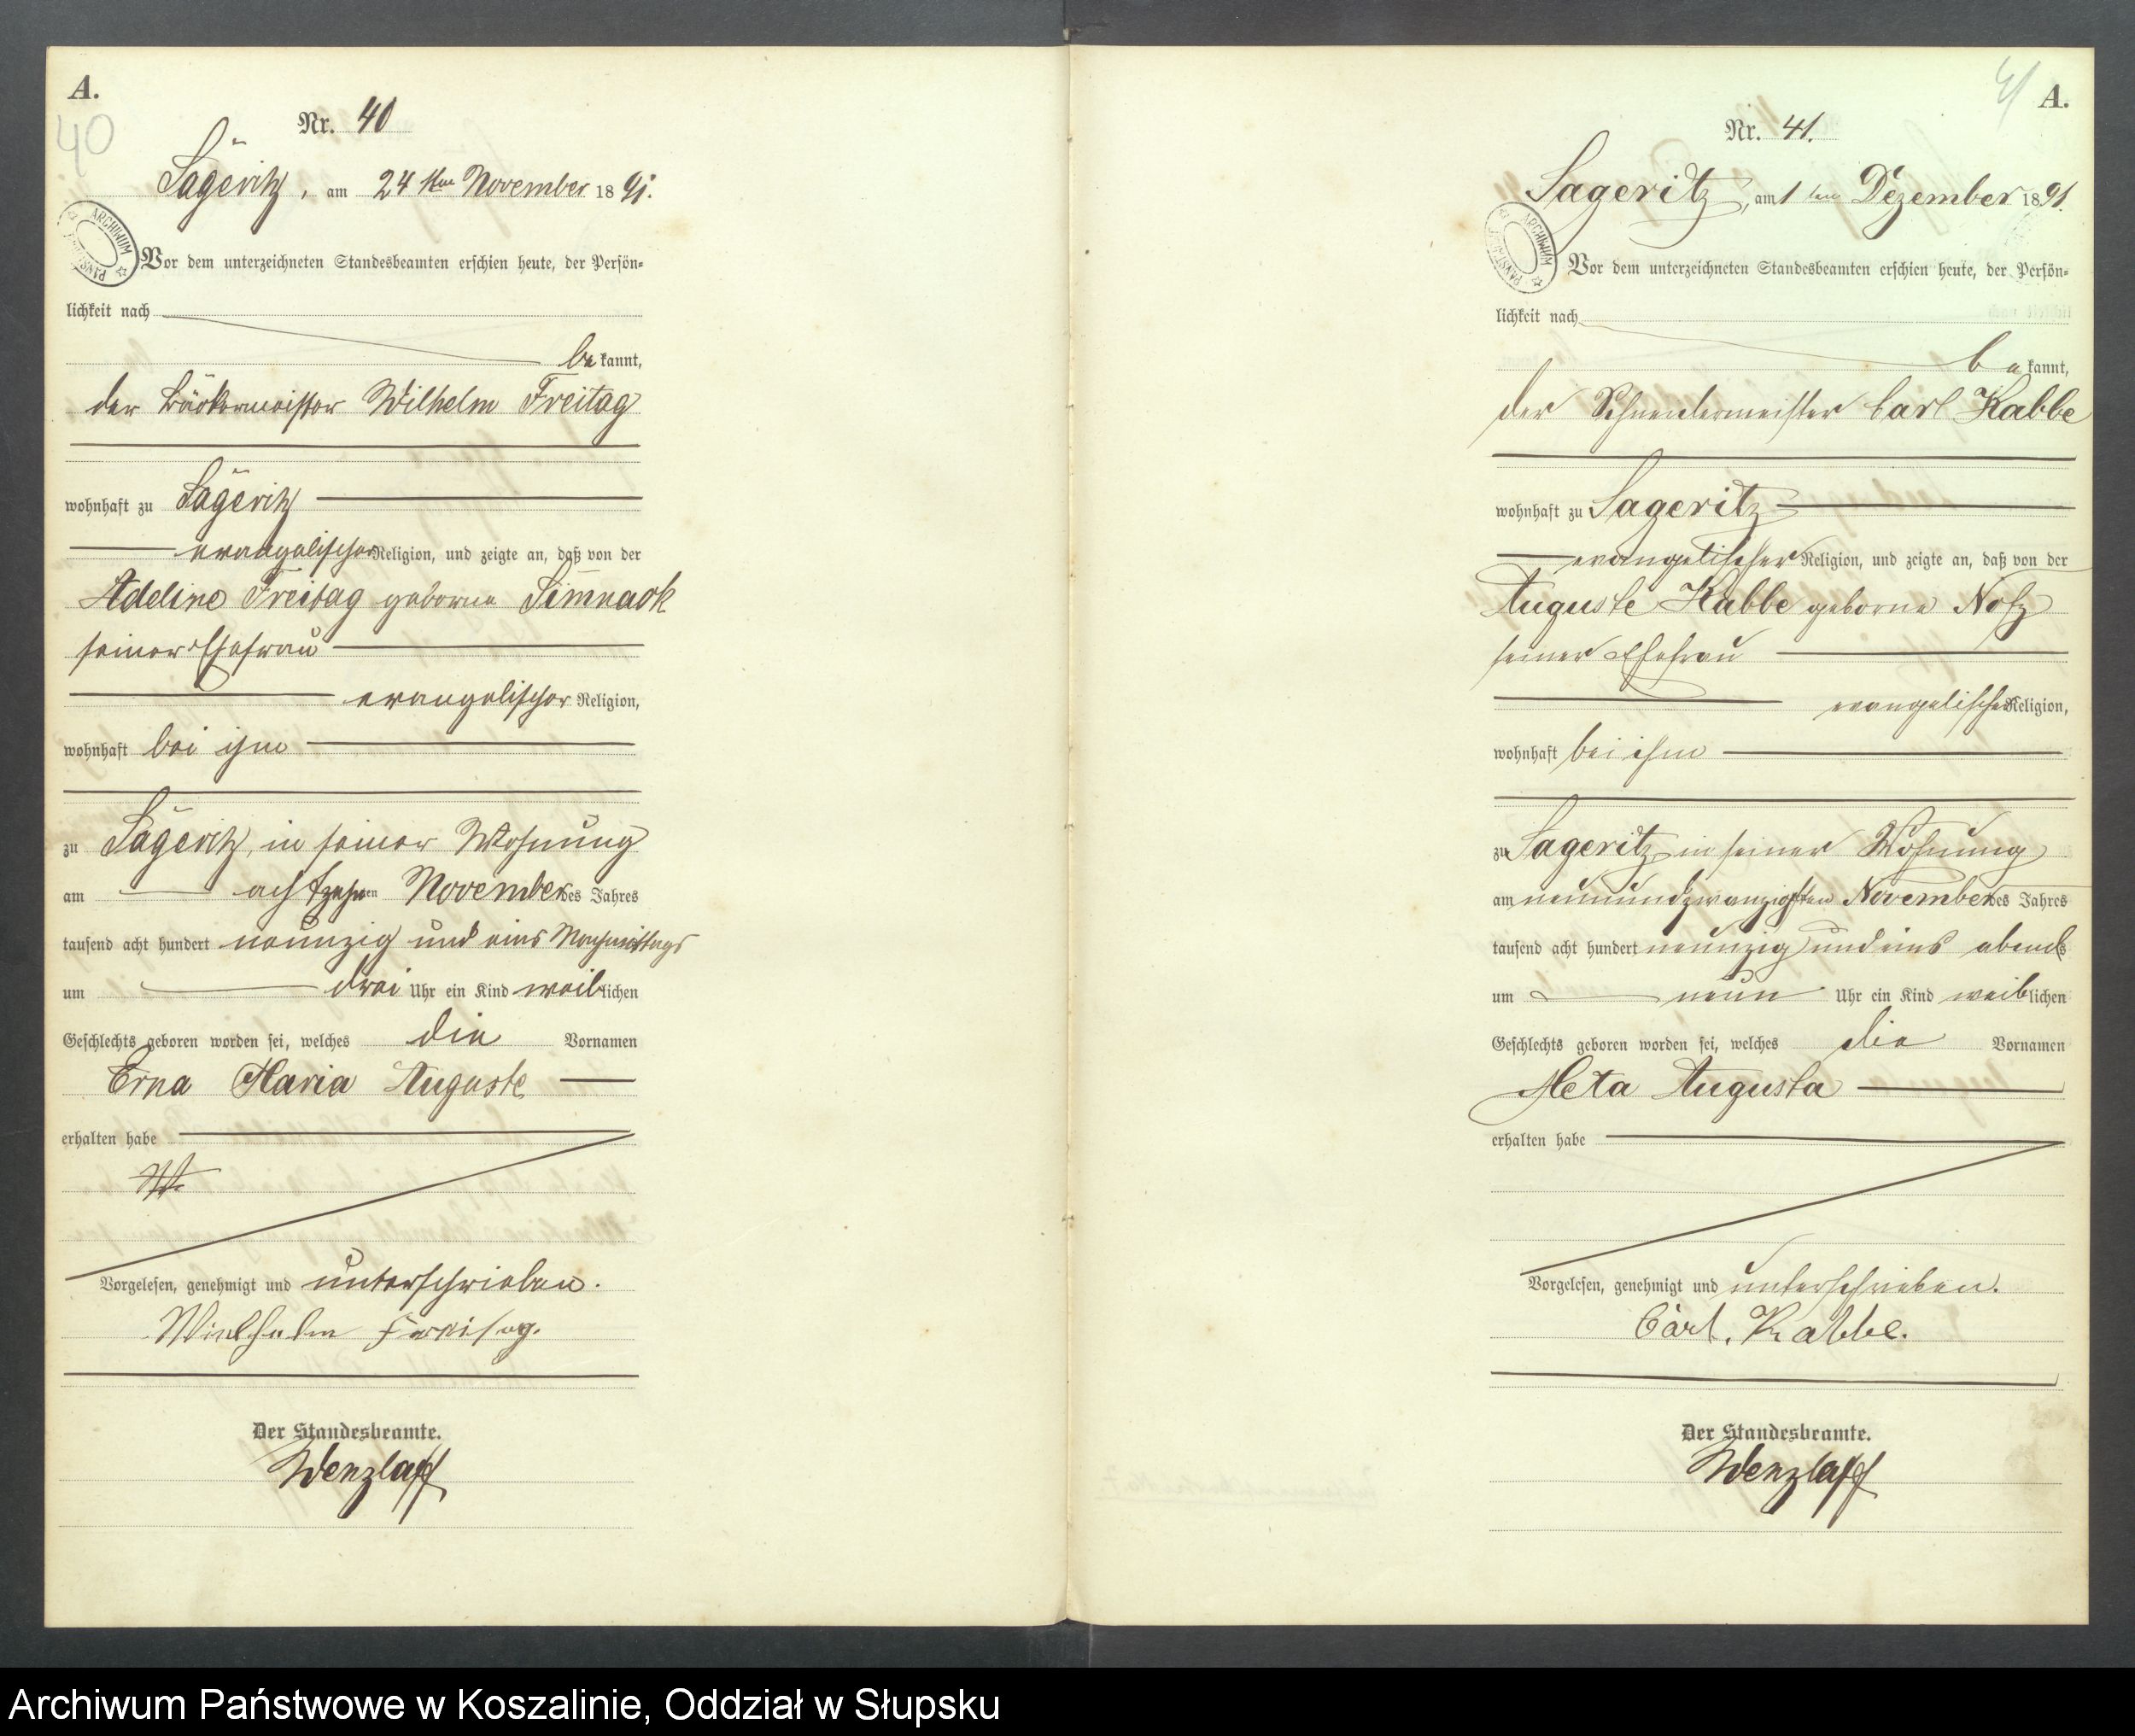 A.
40
Nr. 40
Sageritz, am 24ten November 1891.
ARCHIWUM PAŃSTWOWE
Vor dem unterzeichneten Standesbeamten erschien heute, der Persön-
lichkeit nach
bekannt,
der Bäckermeister Wilhelm Freitag
wohnhaft zu Sageritz
evangelischer Religion, und zeigte an, daß von der
Adeline Freitag geborne
seiner Ehefrau
evangelischer Religion,
wohnhaft bei ihm
zu Sageritz, in seiner Wohnung
am achtzehnten November des Jahres
tausend acht hundert neunzig und eins Nachmittags
um drei Uhr ein Kind weiblichen
Geschlechts geboren worden sei, welches die Vornamen
Erna Maria Auguste
erhalten habe
Vorgelesen, genehmigt und unterschrieben.
Wielhelm Freitag.
Der Standesbeamte.
Wenzlaff
41 A.
Nr. 41.
Sageritz, am 1ten Dezember 1891.
ARCHIWUM PAŃSTWOWE
Vor dem unterzeichneten Standesbeamten erschien heute, der Persön-
lichkeit nach
bekannt,
der Schneidermeister Carl Kabbe
wohnhaft zu Sageritz
evangelischer Religion, und zeigte an, daß von der
Auguste Kabbe geborne
seiner Ehefrau
evangelischer Religion,
wohnhaft bei ihm
zu Sageritz in seiner Wohnung
am neunundzwanzigsten November des Jahres
tausend acht hundert neunzig und eins abends
um neun Uhr ein Kind weiblichen
Geschlechts geboren worden sei, welches die Vornamen
Meta Augusta
erhalten habe
Vorgelesen, genehmigt und unterschrieben.
Carl. Kabbe.
Der Standesbeamte.
Wenzlaff
Archiwum Państwowe w Koszalinie, Oddział w Słupsku